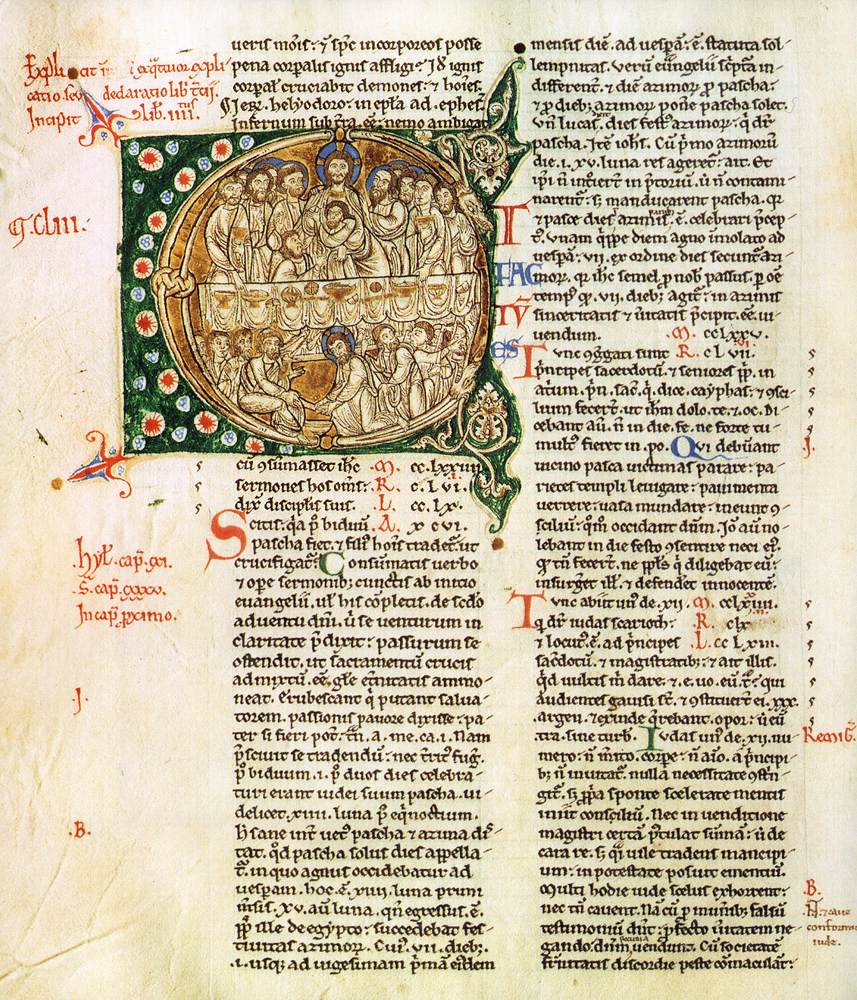 ueris mōis: ⁊ sp̄c incorporeos posse
pena corporalis ignis affligi: ignis
corpal' cruciabit demones: ⁊ hoīes.
helyodoro: in epl̄a ad ephes.
Infernum sub tr̄a. eē: nemo ambigat
Explicat
catio seu dedaratio lib. tcij.
Incipit lib. iiii.
q̄. CLIII.
cū ↄsumasset ih̄c .M. cc.lxxiiii
sermones hos om̄s: .R. c.lvi.
dix̄ discipl̄is suis. .L. cc.lx.
Scitis. q̄a p̄ biduū .A. x cvi.
pascha fiet. ⁊ fili' hoīs tradet. ut
crucifigat̄. Consumatis uerbo
⁊ ope sermonib; cunctis ab inicio
euangelii. ul' his cōpletis. de sc̄do
aduentu dn̄i. ū se uenturum in
claritate p̄dixit: passurum se
ostendit. ut sacramentū crucis
admixtū. eē. gl'e et̄nitatis ammo-
neat. Erubescant q̄ putant salua-
torem. passionis pauore dixisse: pa-
ter si fieri pot̄. tn̄. a. me. ca. i. Nam
p̄sciuit se tradendū: nec trit' fug̃.
p̄ biduum .i. p' duos dies celebra-
turi erant iudei suum pascha. ui-
delicet .xiiii. luna p' eq̄noctium.
h̄ sane int̄ uet' pascha ⁊ azima dist̄-
tat. qd̄ pascha solus dies appella-
t̄. in quo agnus occidebatur ad
uesp̄am. hoc .ē. xiiii. luna primi
m̄sis. xv. aū luna. qn̄ egressus .ē.
pp̄l' ille de egypto: succedebat fes-
tiuitas azimoꝝ. Cui'. vii. dieb;
.i. usq; ad uigesimam p̄mā eisdem
Hyl'. cap̄.
In cap̄. p̄ximo.
.J.
.B.
mensis diē. ad uesp̄ā: ē. statuta sol-
lempnitas. Verū eūngelii sc̄pta in-
different̄. ⁊ diē azimoꝝ p̄ pascha:
⁊ p̄ dieb; azimoꝝ pon̄e pascha solet.
Vn̄ lucas. dies fest' azimoꝝ. q̄ dr̄
pascha. Itē ioh̄s. Cū p̄mo azimorū
die .i. xv. luna res ageret̄: ait. Et
ip̄i n̄ int̄ier̄t in p̄toriū. ū n̄ contami-
narent̄: s; manducarent pascha. q̄r
⁊ pasce dies azimis .ē. celebrari p̄cep-
t'. Vnam q̄ppe diem agno īmolato ad
uesp̄ā: vii. ex ordine dies secunt̄ azi-
moꝝ. q̄r ih̄c semel p̄ nob̄ passus. p̄ oē
temp' q̄. vii. dieb; agit̄: in azimis
sinceritatis ⁊ ūitatis p̄cipit. eē. ui-
uendum. .M. cclxxv.
T FAC TV ES
Tunc ↄgr̄gati sunt .R. clvii.
p̄ncipes sacerdotū. ⁊ seniores pp̄l'. in
atrium. p̄n. sac̄. q̄. dice. cayphas: ⁊ ↄsi-
lium fecer̄t. ut ih̄m dolo. te. ⁊ oc. Di-
cebant aū. n̄ in die. fe. ne forte tu-
mult' fieret in. po. Qvi debūant
uicino pasca uictimas parare: pa-
rietes templi leuigare: pauimenta
uerrere: uasa mundare: ineunt ↄ-
siliū: q̄m̄ occidant dn̄m. Jo aū no-
lebant in die festo ↄsentire neci ei'.
q̄ tn̄ fecer̄t. ne pp̄l's q̄ diligebat eū:
insurget ill'. ⁊ defendet innocentē.
Tunc abiit un' de .xii. .M. cclxxiiii.
q̄ dr̄ iudas scarioth: .R. clx
⁊ locut'. ē. ad p̄ncipes .L. cclxiii.
sac̄dotū. ⁊ magistratib;: ⁊ ait illis.
qd̄ uultis m̄ dare. ⁊ e. uo. eū. t̄. qui
audientes gauisi st̄. ⁊ ↄstituer̄t ei. xxx.
argen. ⁊ exinde q̄rebant. opor. ū eū
tra. sine turb. Iudas un' de .xii. nu-
mero: n̄ m̄ito. corpe: n̄ aīo. a p̄ncipi-
b; n̄ inuitat'. nulla necessitate ↄst̄n-
git'. s; pp̄a sponte scelerate mentis
iniit consiliū. Nec in uenditione
magistri certā p̄tulat sūmā: ū de
cara re. s; q̄i uile tradens mancipi-
um: in potestate posuit ementiū.
Multi hodie iude scelus exhorrent:
nec tn̄ cauent. Nā cū p̄ munib; falsū
testimoniū dnt̄: p̄fecto ūitatem ne-
gando. dn̄m uendunt. Cū societatē
frn̄itatis discordie peste cōmaculant:
.J.
Remig̃.
.B.
conformi
iude.